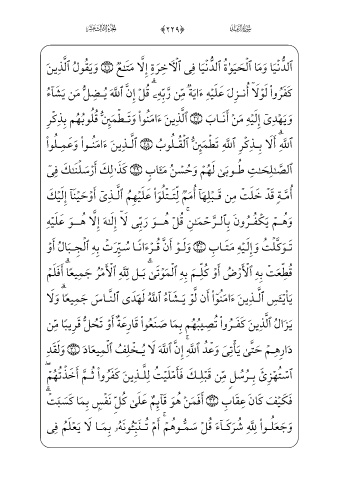 سورة الرعد ﴿٢٤٩﴾ الجزء الثالث عشر
ٱلدُّنْيَا وَمَا ٱلْحَيَوٰةُ ٱلدُّنْيَا فِى ٱلْأَخِرَةِ إِلَّا مَتَـٰعٌ ۝٢٦ وَيَقُولُ ٱلَّذِينَ
كَفَرُوا۟ لَوْلَآ أُنزِلَ عَلَيْهِ ءَايَةٌ مِّن رَّبِّهِۦ ۗ قُلْ إِنَّ ٱللَّهَ يُضِلُّ مَن يَشَآءُ
وَيَهْدِىٓ إِلَيْهِ مَنْ أَنَابَ ۝٢٧ ٱلَّذِينَ ءَامَنُوا۟ وَتَطْمَئِنُّ قُلُوبُهُم بِذِكْرِ
ٱللَّهِ ۗ أَلَا بِذِكْرِ ٱللَّهِ تَطْمَئِنُّ ٱلْقُلُوبُ ۝٢٨ ٱلَّذِينَ ءَامَنُوا۟ وَعَمِلُوا۟
ٱلصَّـٰلِحَـٰتِ طُوبَىٰ لَهُمْ وَحُسْنُ مَـَٔابٍ ۝٢٩ كَذَٰلِكَ أَرْسَلْنَـٰكَ فِىٓ
أُمَّةٍ قَدْ خَلَتْ مِن قَبْلِهَآ أُمَمٌ لِّتَتْلُوَا۟ عَلَيْهِمُ ٱلَّذِىٓ أَوْحَيْنَآ إِلَيْكَ
وَهُمْ يَكْفُرُونَ بِٱلرَّحْمَـٰنِ ۚ قُلْ هُوَ رَبِّى لَآ إِلَـٰهَ إِلَّا هُوَ عَلَيْهِ
تَوَكَّلْتُ وَإِلَيْهِ مَتَابِ ۝٣٠ وَلَوْ أَنَّ قُرْءَانًا سُيِّرَتْ بِهِ ٱلْجِبَالُ أَوْ
قُطِّعَتْ بِهِ ٱلْأَرْضُ أَوْ كُلِّمَ بِهِ ٱلْمَوْتَىٰ ۗ بَل لِّلَّهِ ٱلْأَمْرُ جَمِيعًا ۗ أَفَلَمْ
يَا۟يْـَٔسِ ٱلَّذِينَ ءَامَنُوٓا۟ أَن لَّوْ يَشَآءُ ٱللَّهُ لَهَدَى ٱلنَّاسَ جَمِيعًا ۗ وَلَا
يَزَالُ ٱلَّذِينَ كَفَرُوا۟ تُصِيبُهُم بِمَا صَنَعُوا۟ قَارِعَةٌ أَوْ تَحُلُّ قَرِيبًا مِّن
دَارِهِمْ حَتَّىٰ يَأْتِىَ وَعْدُ ٱللَّهِ ۚ إِنَّ ٱللَّهَ لَا يُخْلِفُ ٱلْمِيعَادَ ۝٣١ وَلَقَدِ
ٱسْتُهْزِئَ بِرُسُلٍ مِّن قَبْلِكَ فَأَمْلَيْتُ لِلَّذِينَ كَفَرُوا۟ ثُمَّ أَخَذْتُهُمْ ۖ
فَكَيْفَ كَانَ عِقَابِ ۝٣٢ أَفَمَنْ هُوَ قَآئِمٌ عَلَىٰ كُلِّ نَفْسٍۭ بِمَا كَسَبَتْ ۗ
وَجَعَلُوا۟ لِلَّهِ شُرَكَآءَ قُلْ سَمُّوهُمْ ۚ أَمْ تُنَبِّـُٔونَهُۥ بِمَا لَا يَعْلَمُ فِى